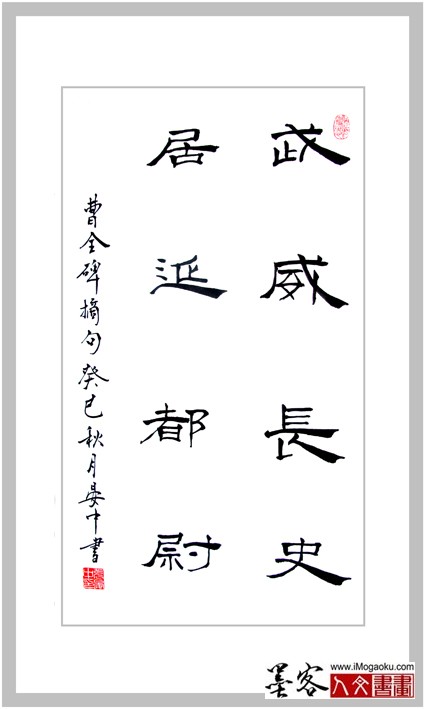 武威長史
居延都尉
曹全碑摘句癸巳秋月晏中書
墨客
www.iMogaoku.com
人文書畫